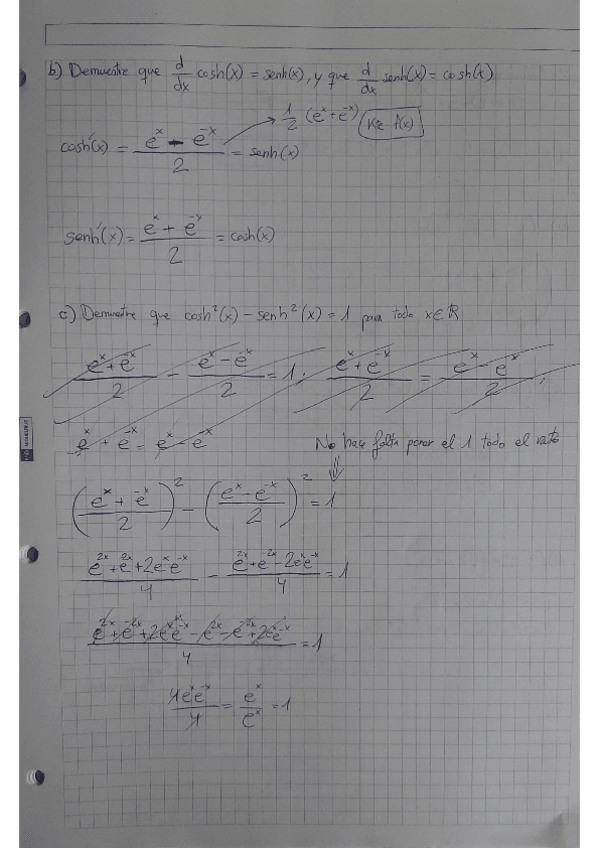 b) Demuestre que d/dx cosh(x) = senh(x), y que d/dx senh(x) = cosh(x)
1/2 (e^x + e^-x)
cosh'(x) = (e^x - e^-x)/2 = senh(x)
senh'(x) = (e^x + e^-x)/2 = cosh(x)
c) Demuestre que cosh²(x) - senh²(x) = 1 para todo x ∈ ℝ
(e^x + e^-x)/2 - (e^x - e^-x)/2 = 1. (e^x + e^-x)/2 = (e^x - e^-x)/2,
e^x + e^-x = e^x - e^-x
No hace falta poner el 1 todo el rato
((e^x + e^-x)/2)² - ((e^x - e^-x)/2)² = 1
(e^2x + e^-2x + 2e^x e^-x)/4 - (e^2x + e^-2x - 2e^x e^-x)/4 = 1
(e^2x + e^-2x + 2e^x e^-x - e^2x - e^-2x + 2e^x e^-x)/4 = 1
4e^x e^-x/4 = e^x/e^x = 1